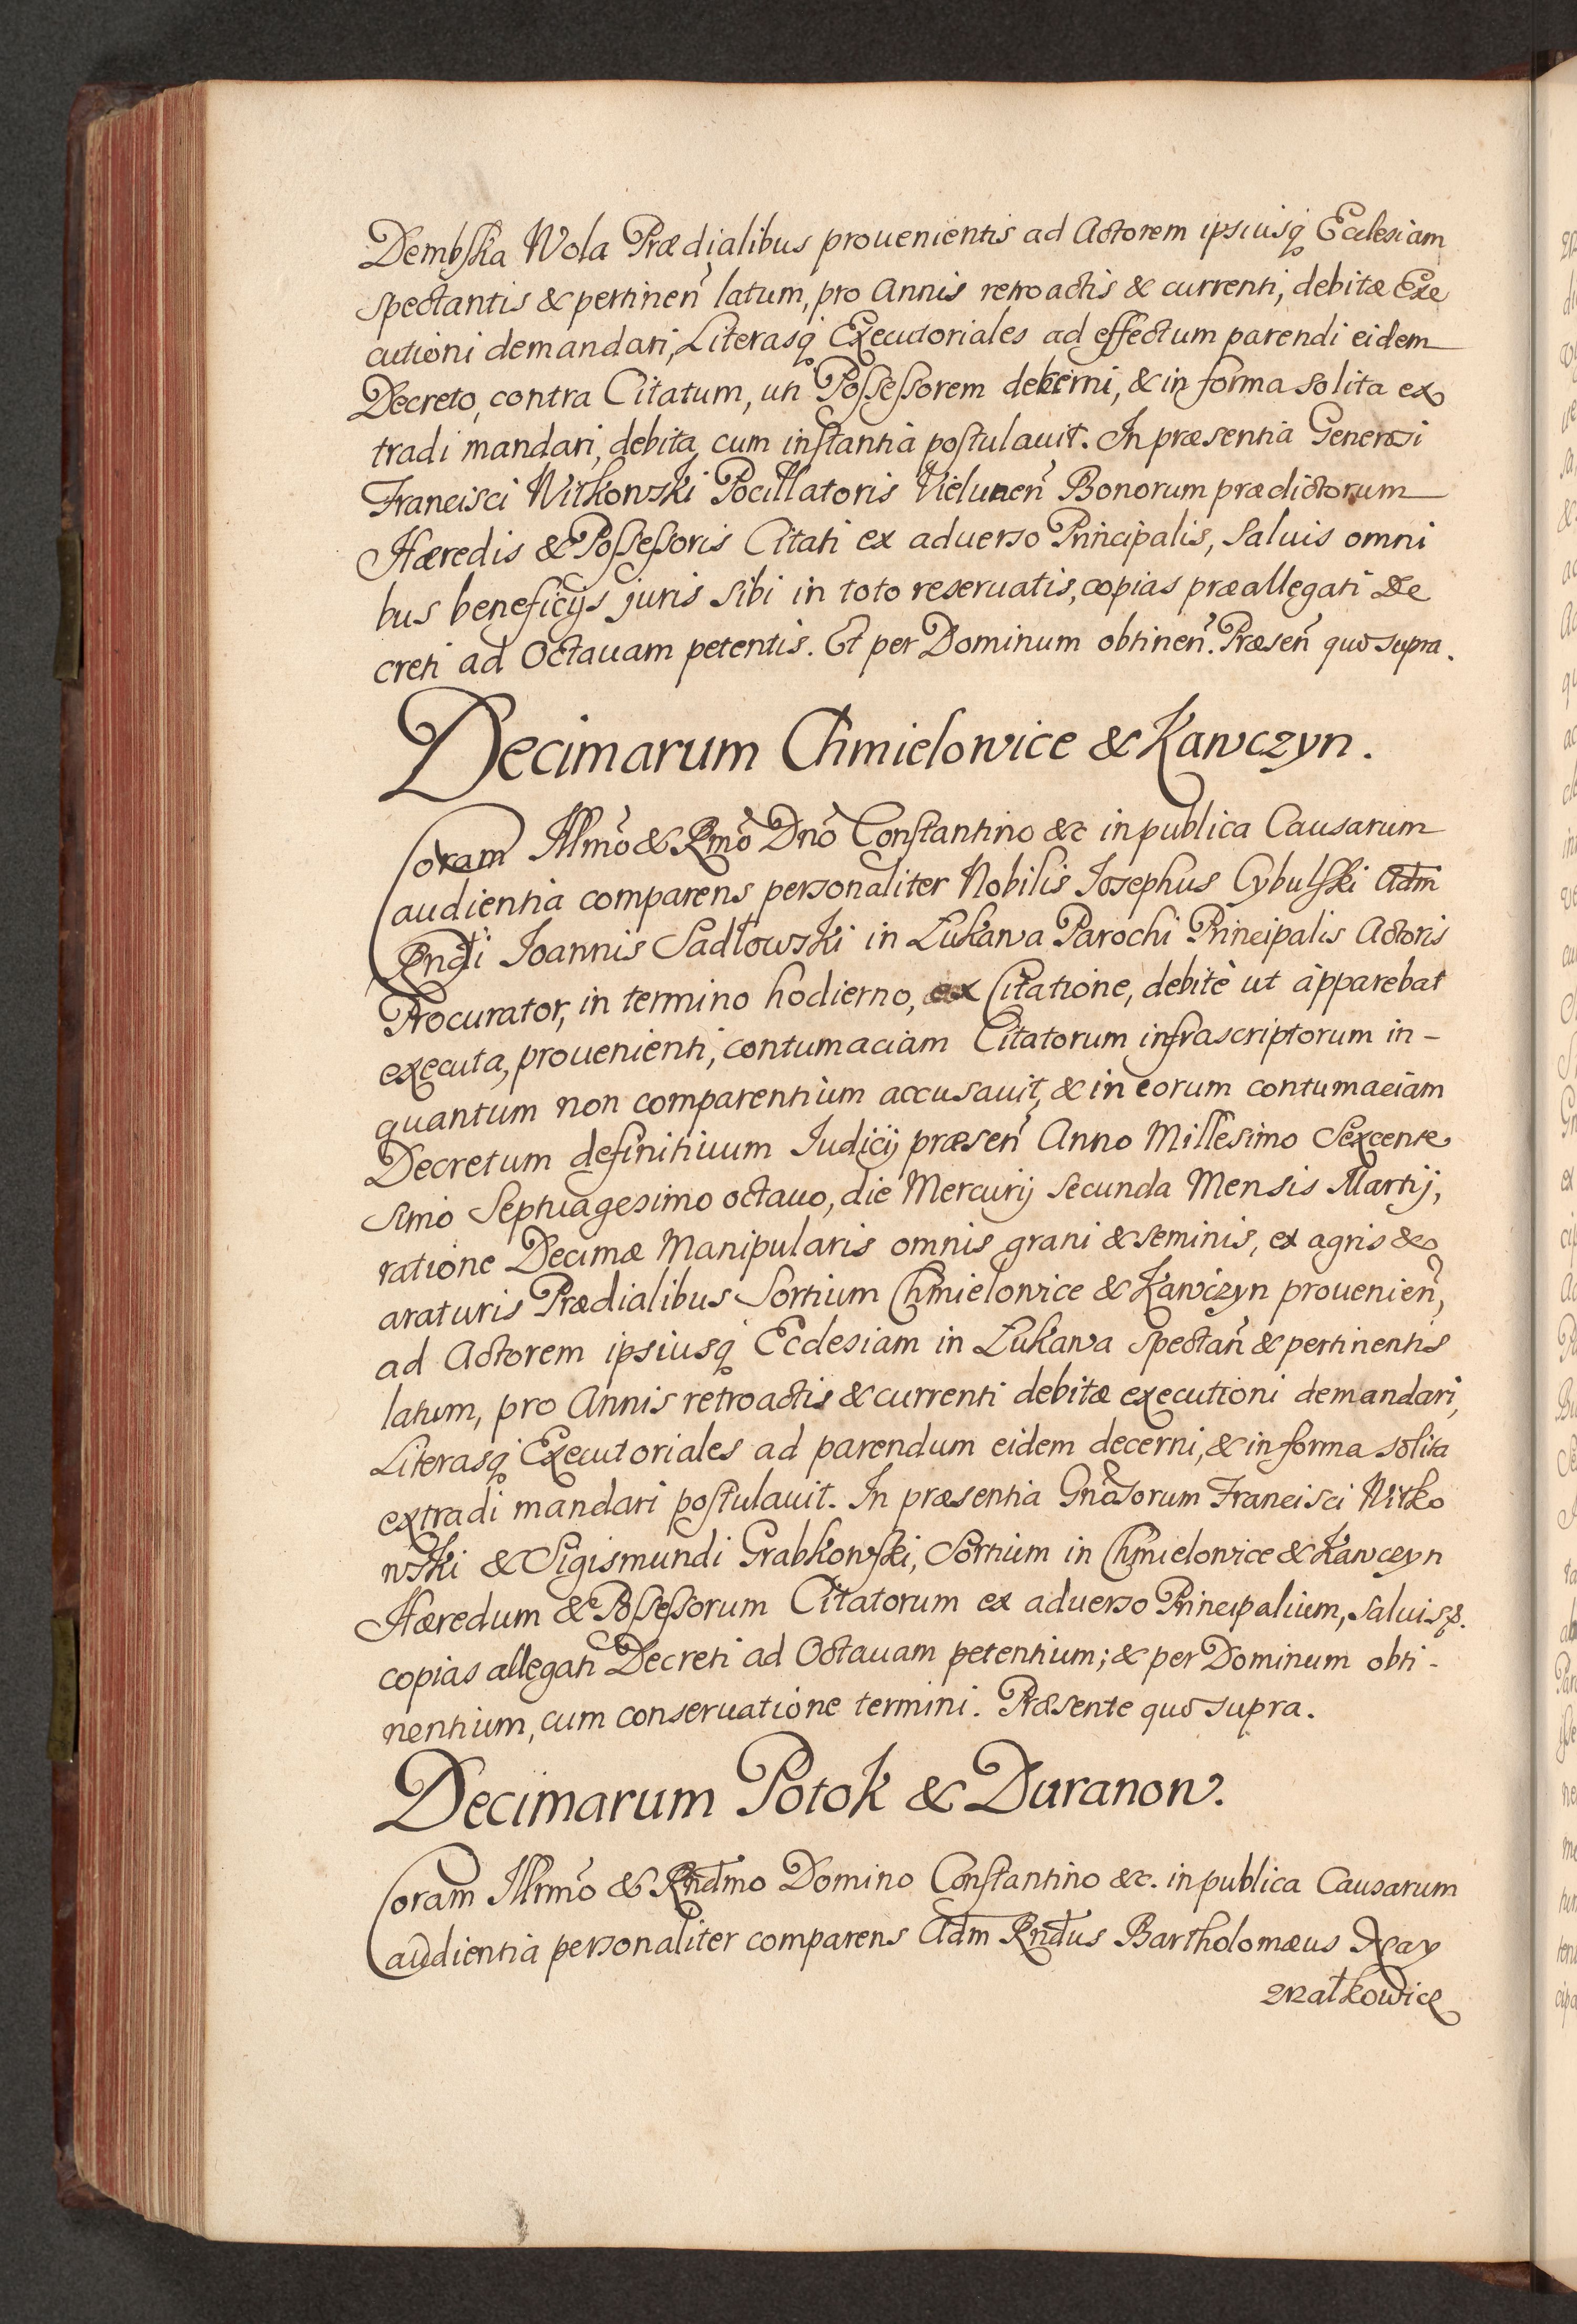 Dembska Wola Prædialibus prouenientis ad Actorem ipsiusq Ecclesiam
spectantis & pertinen latum, pro Annis retroactis & currenti, debitæ Exe
cutioni demandari, Literasq Executoriales ad effectum parendi eidem
Decreto, contra Citatum, uti Possessorem decerni, & in forma solita ex
tradi mandari, debita cum instantia postulauit. In præsentia Generosi
Francisci Witkowski Pocillatoris Vielunen Bonorum prædictorum
Hæredis & Possessoris Citati ex aduerso Principalis, saluis omni
bus beneficijs juris sibi in toto reseruatis, copias præallegati De
creti ad Octauam petentis. Et per Dominum obtinen. Præsen quo supra.
Decimarum Chmielowice & Kawczyn.
Coram Illmo & Rmo Dno Constantino &c in publica Causarum
audientia comparens personaliter Nobilis Josephus Cybulski Adm
Rndi Joannis Sadłowski in Łukawa Parochi Principalis Actoris
Procurator, in termino hodierno, ex Citatione, debitè ut àpparebat
executa, prouenienti, contumaciam Citatorum infrascriptorum in-
quantum non comparentium accusauit, & in eorum contumaciam
Decretum definitiuum Iudicij præsen Anno Millesimo Sexcente
simo Septuagesimo octauo, die Mercurij secunda Mensis Martij,
ratione Decimæ Manipularis omnis grani & seminis, ex agris &
araturis Prædialibus Sortium Chmielowice & Kawczyn prouenien,
ad Actorem ipsiusq Ecclesiam in Łukawa spectan & pertinentis
latum, pro Annis retroactis & currenti debitæ executioni demandari,
Literasq Executoriales ad parendum eidem decerni, & in forma solita
extradi mandari postulauit. In præsentia Gnosorum Francisci Witko
wski & Sigismundi Grabkowski, Sortium in Chmielowice & Kawczyn
Hæredum & Possessorum Citatorum ex aduerso Principalium, saluis
copias allegati Decreti ad Octauam petentium; & per Dominum obti-
nentium, cum conseruatione termini. Præsente quo supra.
Decimarum Potok & Duranow.
Coram Illrmo & Rndmo Domino Constantino &c. in publica Causarum
audientia personaliter comparens Adm Rndus Bartholomæus Xay
Małkowice